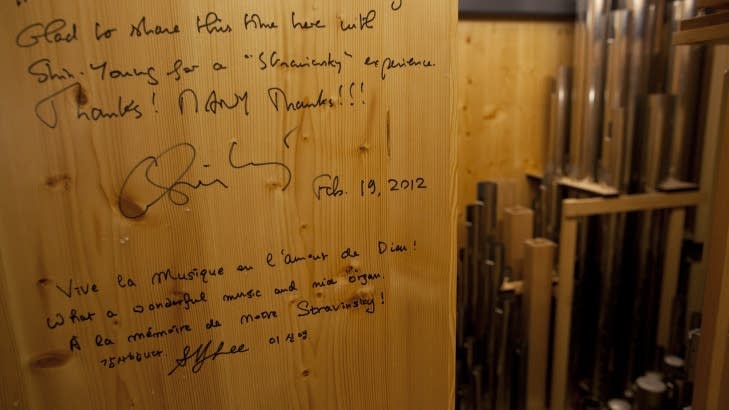 Glad to share this time here with
Shin-Young for a "Stravinsky" experience.
Thanks! MANY Thanks!!!
Feb. 19, 2012
Vive la Musique en l'amour de Dieu!
What a wonderful music and nice organ.
À la mémoire de notre Stravinsky!
감사합니다. Lee 이신영